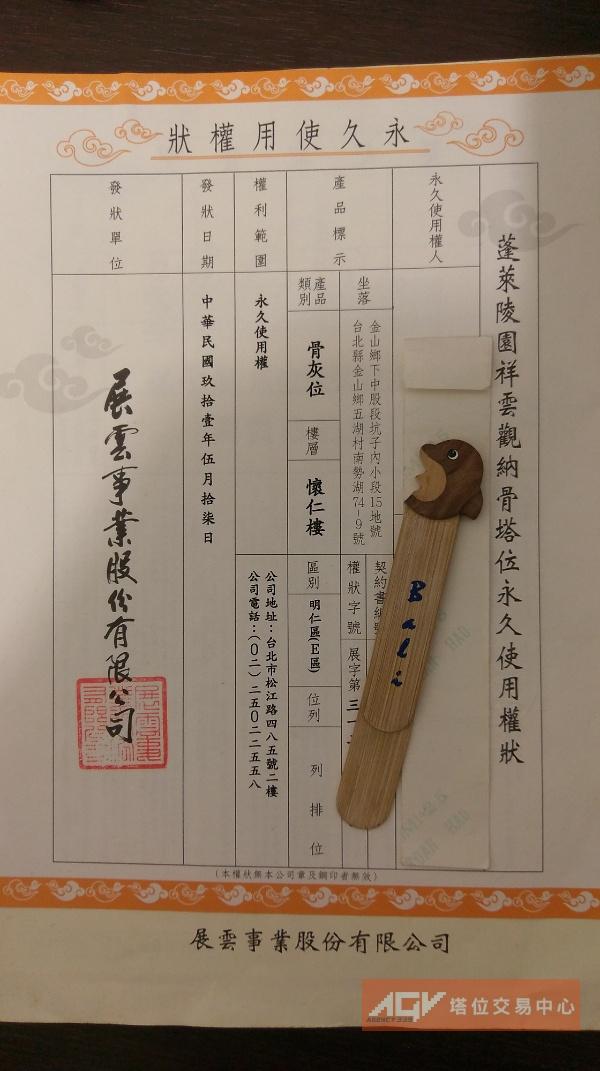 永久使用權狀
蓬萊陵園祥雲觀納骨塔位永久使用權狀
永久使用權人
產品標示
坐落
金山鄉下中股段坑子內小段15地號
台北縣金山鄉五湖村南勢湖74-9號
契約書編號
權狀字號
展字第三一
產品類別
骨灰位
樓層
懷仁樓
區別
明仁區(E區)
位列
列排位
權利範圍
永久使用權
公司地址：台北市松江路四八五號二樓
公司電話：(０二)二五０二二五五八
發狀日期
中華民國玖拾壹年伍月拾柒日
發狀單位
展雲事業股份有限公司
Bali
(本權狀無本公司章及鋼印者無效)
展雲事業股份有限公司
AGV 塔位交易中心